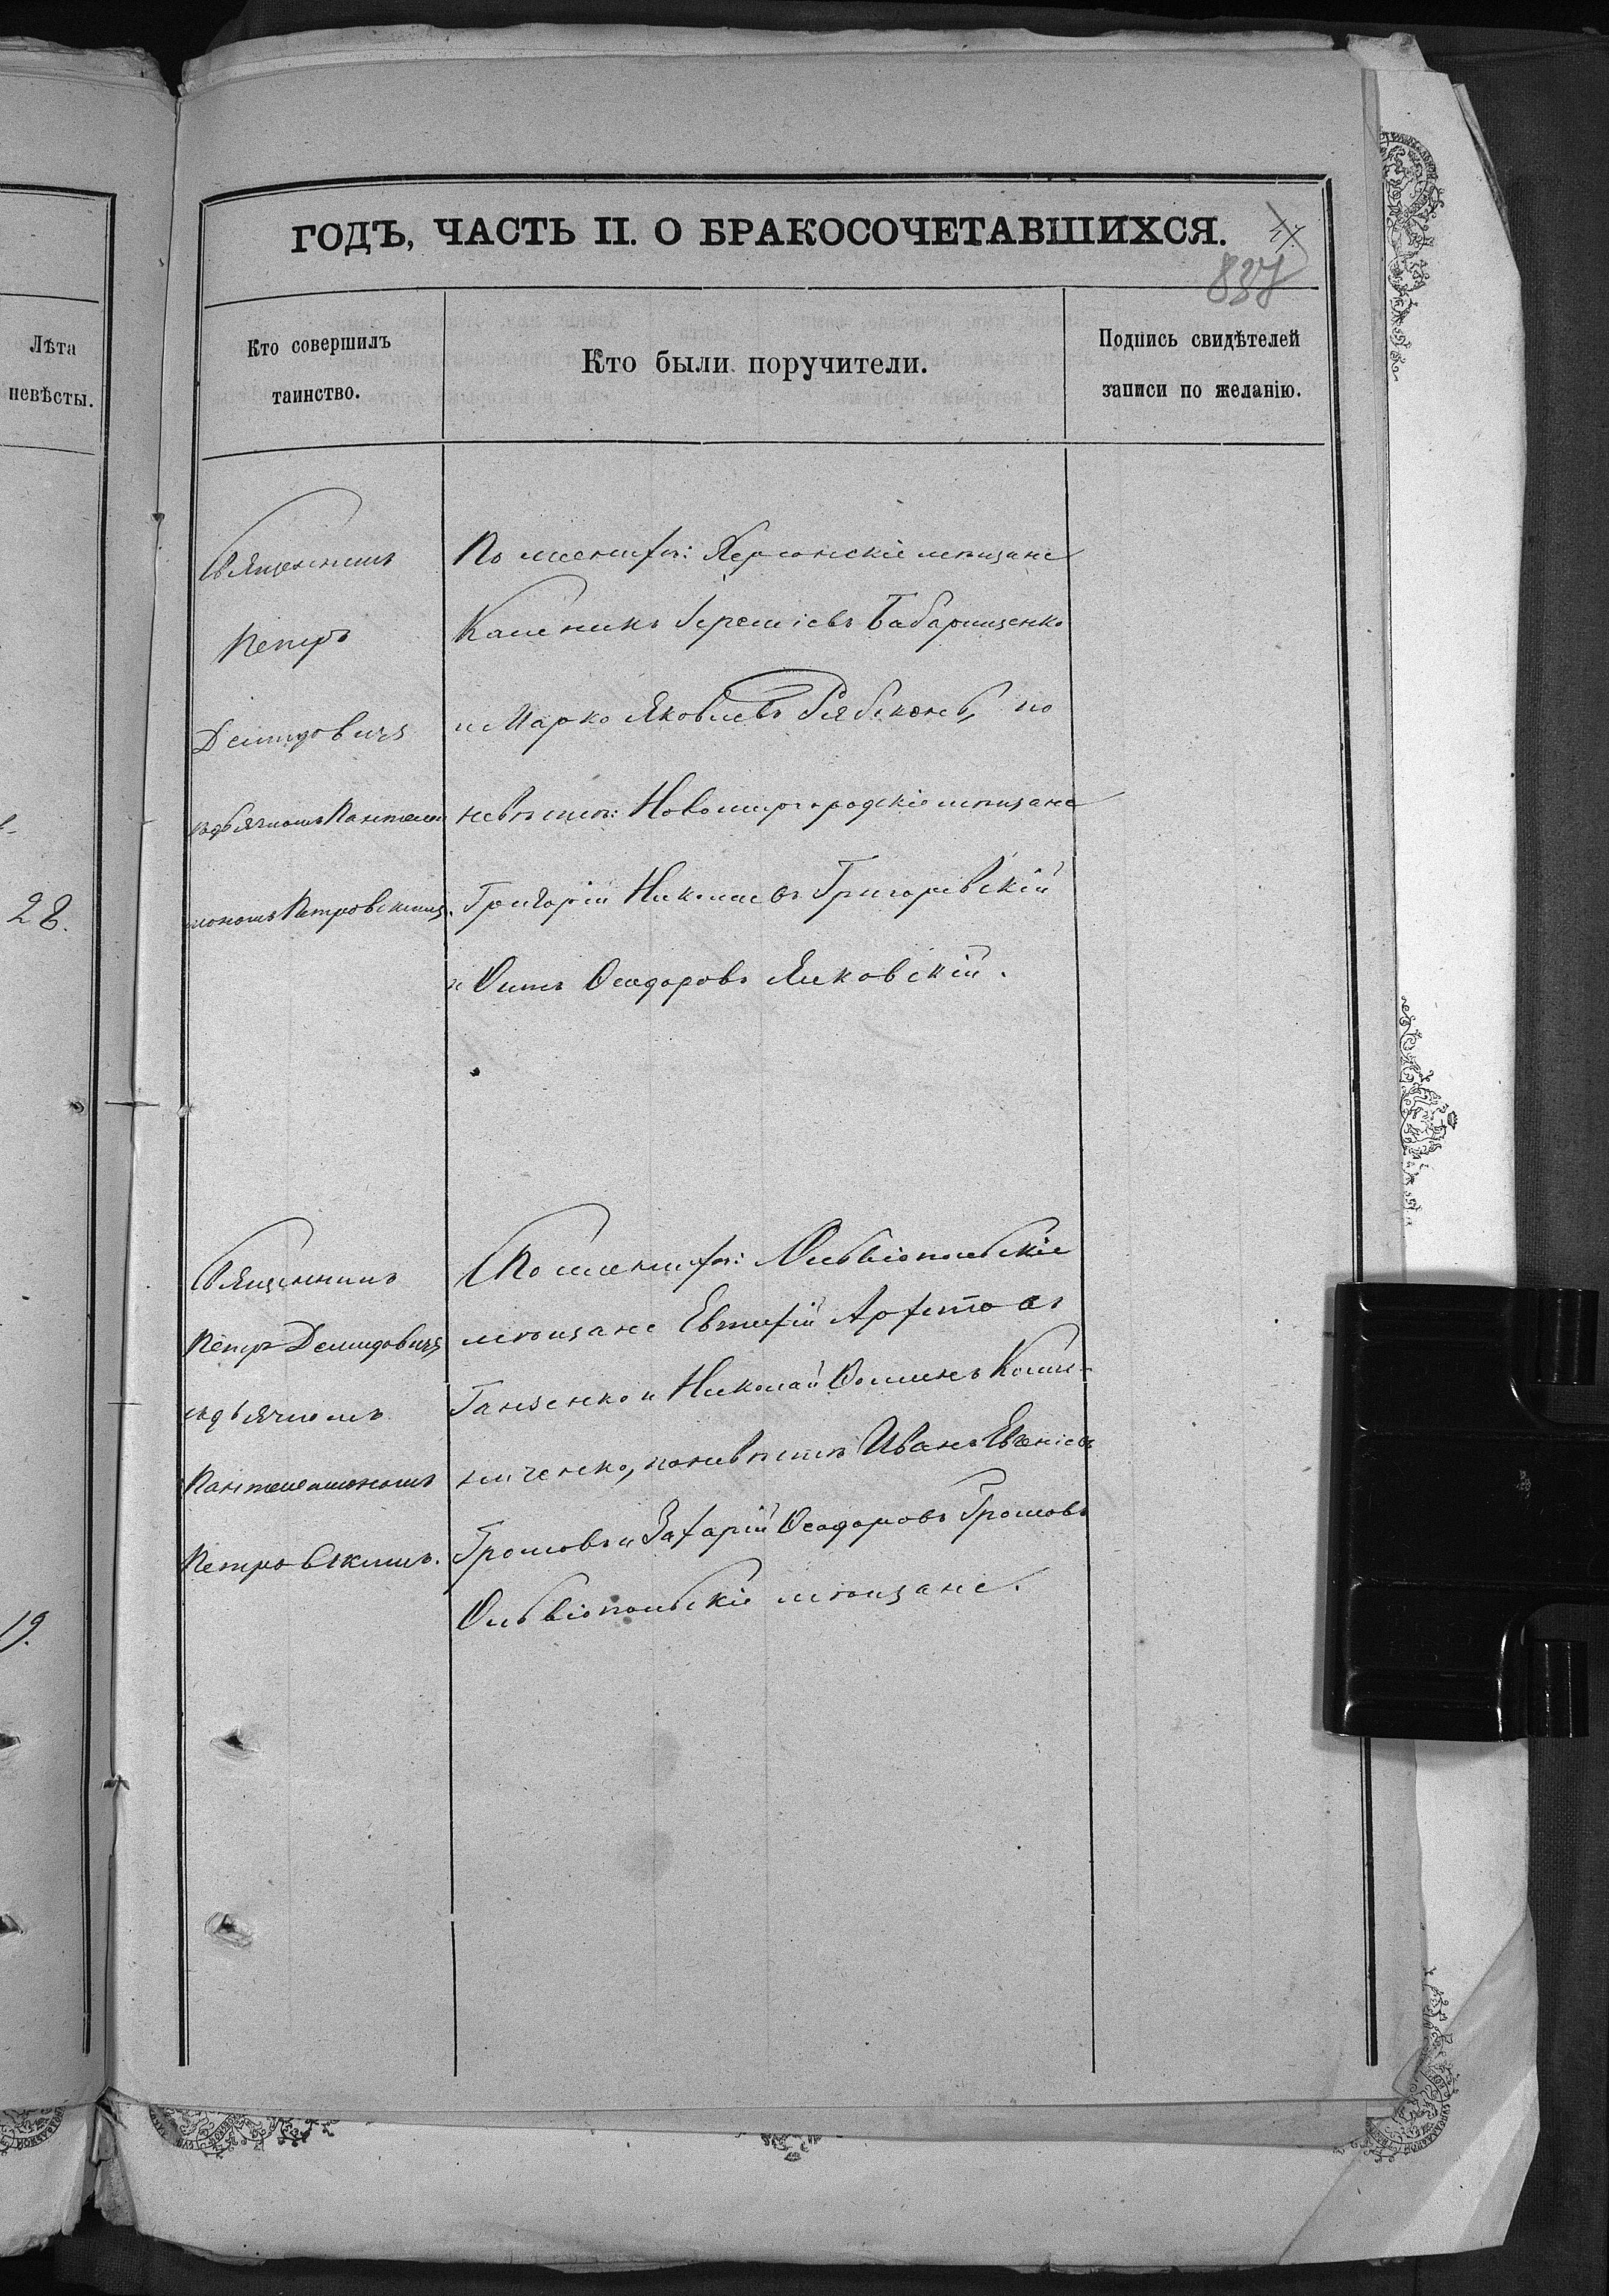 ГОДЪ, ЧАСТЬ II. О БРАКОСОЧЕТАВШИХСЯ.
837
Лѣта
невѣсты.
Кто совершилъ
таинство.
Кто были поручители.
Подпись свидѣтелей
записи по желанію.
28.
19.
Священникъ
Петръ
Демидовичъ
съ дьячкомъ Пантелеи
мономъ Петровскимъ.
По женихѣ: Херсонскіе мѣщане
Каленикъ Іереміевъ Бабарищенко
и Марко Яковлевъ Рябоконь, по
невѣстѣ: Новомиргородскіе мѣщане
Григорій Николаевъ Григоревскій
и Ѳеодоровъ Янковскій.
Священникъ
Петръ Демидовичъ
съ дьячкомъ
Пантелеимономъ
Петровскимъ.
По женихѣ: Ольвіопольскіе
мѣщане Евтихій
и Николай Ѳоминъ
по невѣстѣ Иванъ
Громовъ и Захарій Ѳеодоровъ Громовъ
Ольвіопольскіе мѣщане.